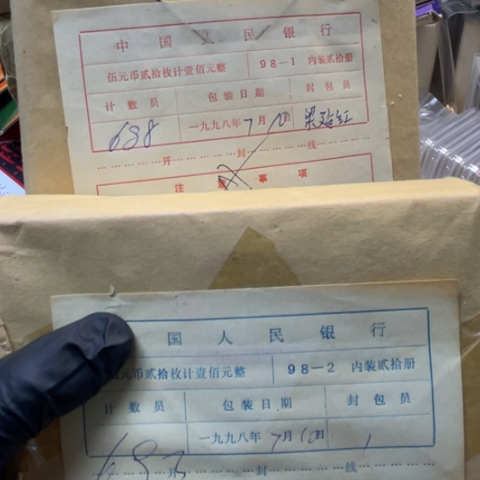 中国人民银行
伍元币贰拾枚计壹佰元整 98-1 内装贰拾册
计数员 包装日期 封包员
688 一九九八年7月10日
开封线
注意事项
国人民银行
伍元币贰拾枚计壹佰元整 98-2 内装贰拾册
计数员 包装日期 封包员
683 一九九八年7月10日
开封线